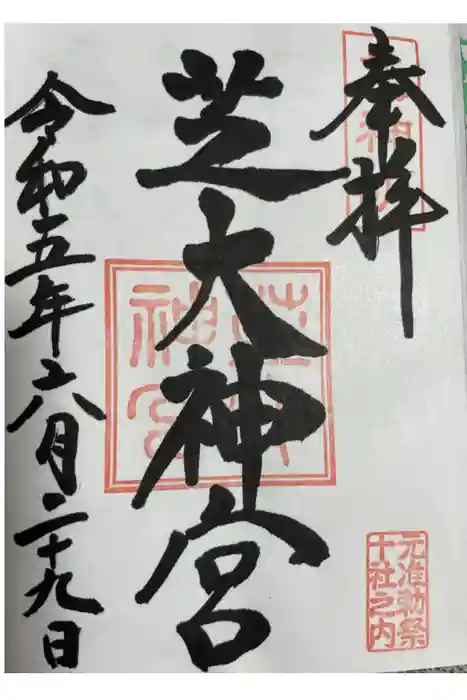 奉拝
芝大神宮
令和五年六月二十九日
元准勅祭
十社之内